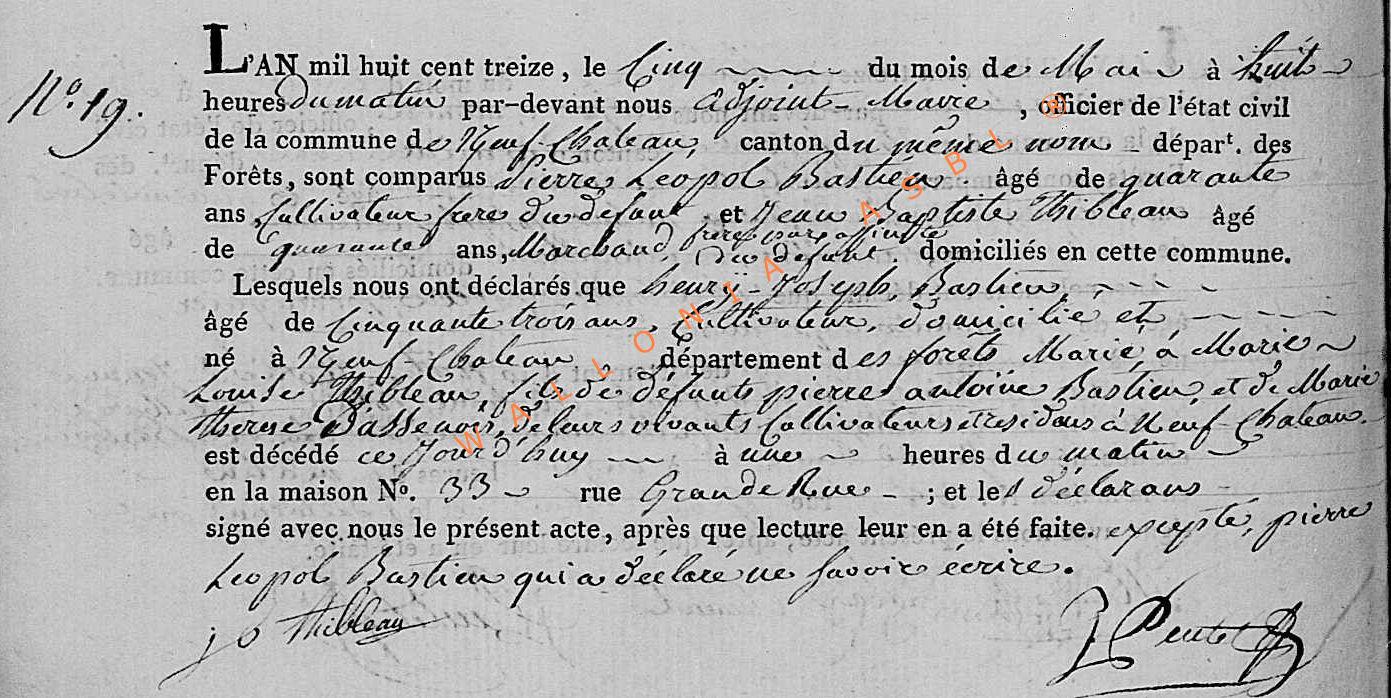 N.º 19.
L'AN mil huit cent treize, le Cinq du mois de Mai à huit
heures du matin par-devant nous adjoint-Maire, officier de l'état civil
de la commune de Neuf-Chateau, canton du même nom départ. des
Forêts, sont comparus Pierre Leopol Bastien âgé de quarante
ans, Cultivateur frere du defunt et Jean Baptiste Thibleau âgé
de quarante ans, Marchand, frere par affinité
du défunt, domiciliés en cette commune.
Lesquels nous ont déclarés que henrÿ-Joseph, Bastien,
âgé de Cinquante trois ans, Cultivateur, domicilié et
né à Neuf-Chateau, département des forêts Marié, à Marie
Louise Thibleau, fils de défunts pierre antoine Bastien, et de Marie
therese Dassenois, de leurs vivants Cultivateurs et residans à Neuf-Chateau.
est décédé ce Jour d'huy à une heures du matin
en la maison Nº. 33 rue Grande Rue ; et les déclarans
signé avec nous le présent acte, après que lecture leur en a été faite. excepté, pierre
Leopol Bastien qui a déclaré ne savoir écrire.
j b Thibleau
WALLONIA ASBL ®